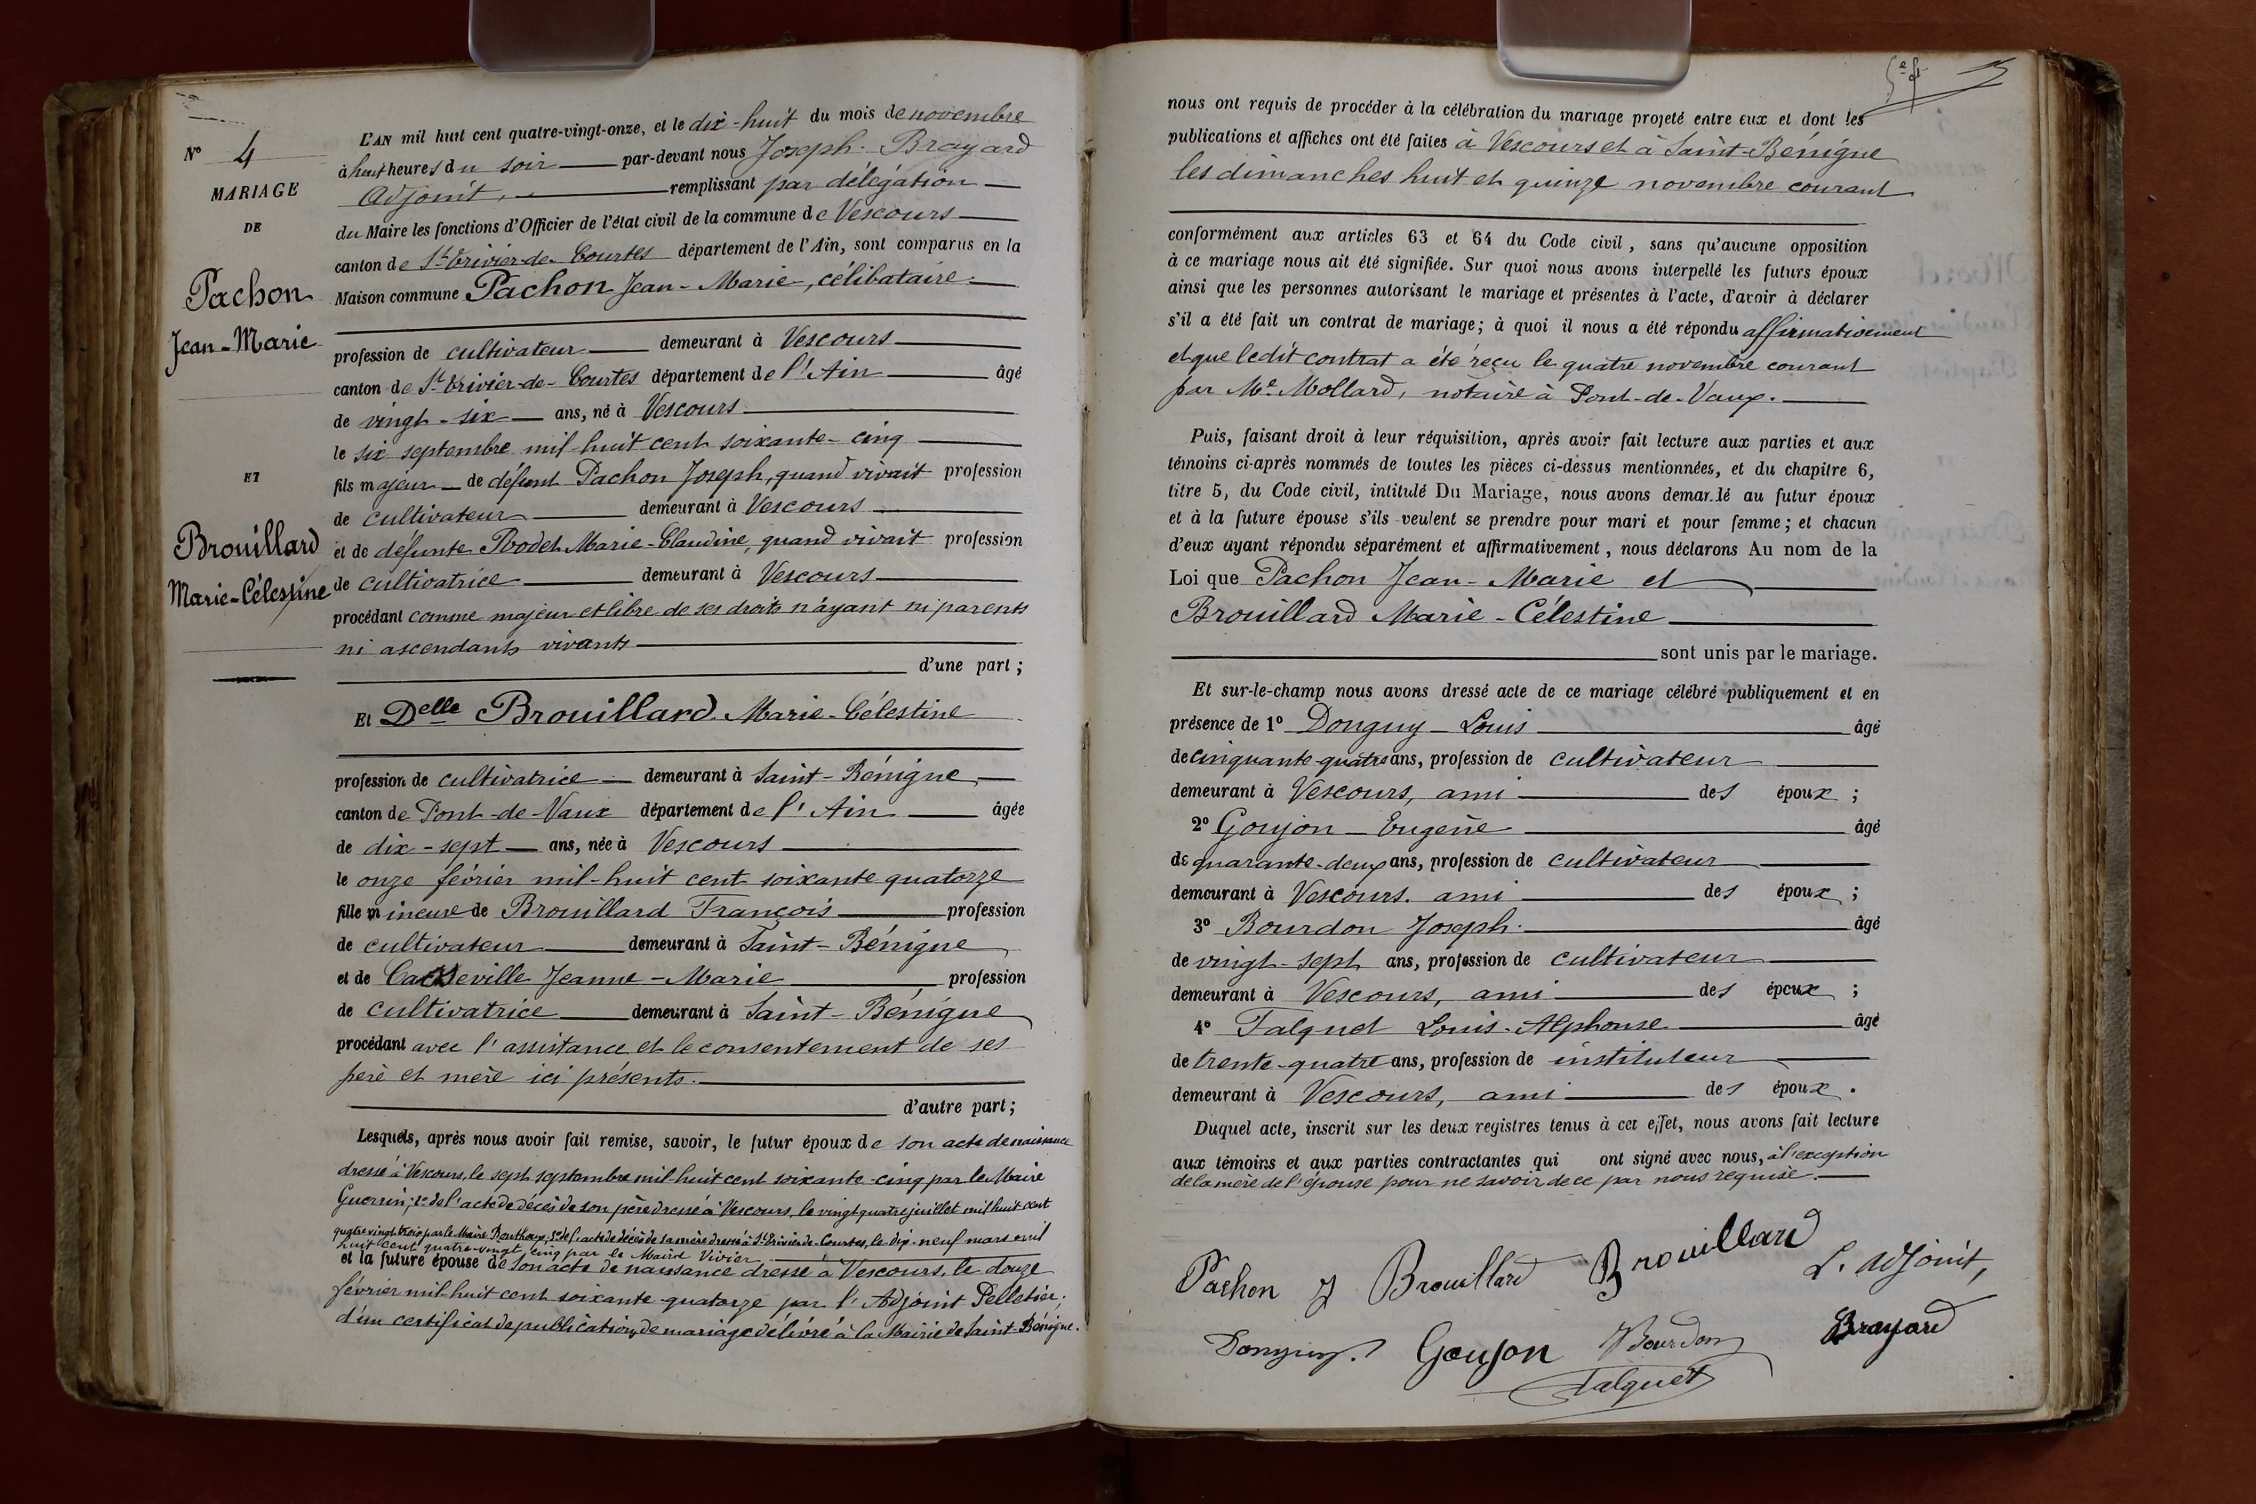 N° 4
MARIAGE
DE
Pachon
Jean-Marie
ET
Brouillard
Marie-Célestine
L'AN mil huit cent quatre-vingt-onze, et le dix-huit du mois de novembre
à huit heures du soir par-devant nous Joseph Brayard
Adjoint, remplissant par délégation
du Maire les fonctions d'Officier de l'état civil de la commune de Vescours
canton de St Trivier-de-Courtes département de l'Ain, sont comparus en la
Maison commune Pachon Jean-Marie, célibataire
profession de cultivateur demeurant à Vescours
canton de St Trivier-de-Courtes département de l'Ain âgé
de vingt-six ans, né à Vescours
le six septembre mil huit cent soixante-cinq
fils majeur de défunt Pachon Joseph, quand vivait profession
de cultivateur demeurant à Vescours
et de défunte Marie-Claudine, quand vivait profession
de cultivatrice demeurant à Vescours
procédant comme majeur et libre de ses droits n'ayant ni parents
ni ascendants vivants
d'une part ;
Et Delle Brouillard Marie-Célestine
profession de cultivatrice demeurant à Saint-Bénigne
canton de Pont-de-Vaux département de l'Ain âgée
de dix-sept ans, née à Vescours
le onze février mil-huit cent soixante quatorze
fille mineure de Brouillard François profession
de cultivateur demeurant à Saint-Bénigne
et de Jeanne-Marie profession
de cultivatrice demeurant à Saint-Bénigne
procédant avec l'assistance et le consentement de ses
père et mère ici présents.
d'autre part ;
Lesquels, après nous avoir fait remise, savoir, le futur époux de son acte de naissance
dressé à Vescours, le sept septembre mil huit cent soixante-cinq par le Maire
Guerrin; 2° de l'acte de décès de son père dressé à Vescours, le vingt quatre juillet mil huit cent
quatre vingt trois par le Maire 3° de l'acte de décès de sa mère dressé à St Trivier-de-Courtes, le dix-neuf mars mil
huit cent quatre-vingt cinq par le Maire Vivier
et la future épouse de son acte de naissance dressé à Vescours, le douze
février mil huit cent soixante quatorze par l'Adjoint Pelletier.
d'un certificat de publication de mariage délivré à la Mairie de Saint-Bénigne.
nous ont requis de procéder à la célébration du mariage projeté entre eux et dont les
publications et affiches ont été faites à Vescours et à Saint-Bénigne
les dimanches huit et quinze novembre courant
conformément aux articles 63 et 64 du Code civil, sans qu'aucune opposition
à ce mariage nous ait été signifiée. Sur quoi nous avons interpellé les futurs époux
ainsi que les personnes autorisant le mariage et présentes à l'acte, d'avoir à déclarer
s'il a été fait un contrat de mariage; à quoi il nous a été répondu affirmativement
et que ledit contrat a été reçu le quatre novembre courant
par Me Mollard, notaire à Pont-de-Vaux.
Puis, faisant droit à leur réquisition, après avoir fait lecture aux parties et aux
témoins ci-après nommés de toutes les pièces ci-dessus mentionnées, et du chapitre 6,
titre 5, du Code civil, intitulé Du Mariage, nous avons demandé au futur époux
et à la future épouse s'ils veulent se prendre pour mari et pour femme; et chacun
d'eux ayant répondu séparément et affirmativement, nous déclarons Au nom de la
Loi que Pachon Jean-Marie et
Brouillard Marie-Célestine
sont unis par le mariage.
Et sur-le-champ nous avons dressé acte de ce mariage célébré publiquement et en
présence de 1° Donguy Louis âgé
de cinquante-quatre ans, profession de cultivateur
demeurant à Vescours, ami des époux ;
2° Goujon Eugène âgé
de quarante-deux ans, profession de cultivateur
demeurant à Vescours. ami des époux ;
3° Bourdon Joseph. âgé
de vingt-sept ans, profession de cultivateur
demeurant à Vescours, ami des époux ;
4° Falquet Louis-Alphonse âgé
de trente-quatre ans, profession de instituteur
demeurant à Vescours, ami des époux.
Duquel acte, inscrit sur les deux registres tenus à cet effet, nous avons fait lecture
aux témoins et aux parties contractantes qui ont signé avec nous, à l'exception
de la mère de l'épouse pour ne savoir de ce par nous requise.
Pachon J Brouillard Brouillard L'Adjoint,
Donguy. Goujon Bourdon Brayard
Falquet